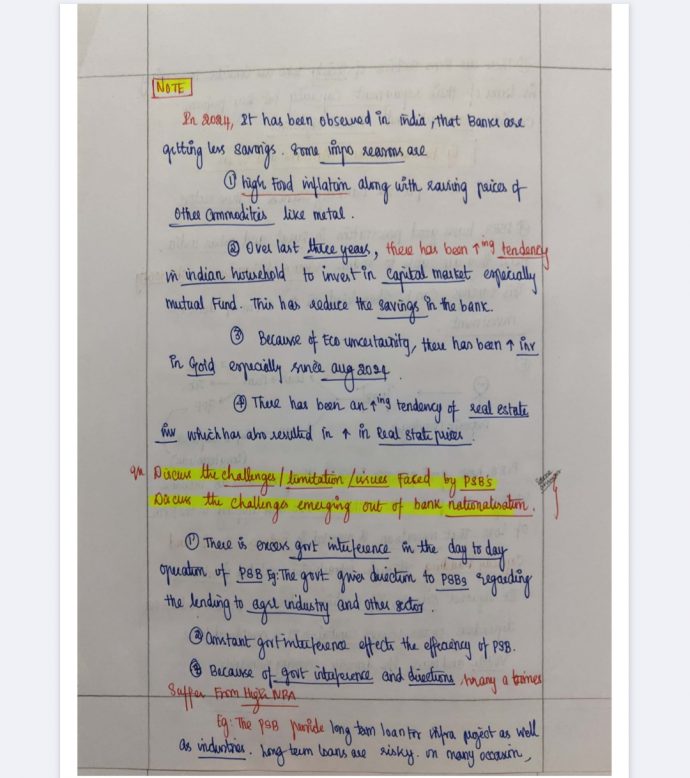 NOTE
In 2024, It has been observed in india, that Banks are
getting less savings. Some impo reasons are
① high Food inflation along with raising prices of
Other Commodities like metal.
② Over last three years, there has been ↑ing tendency
in indian household to invest in Capital market especially
mutual Fund. This has reduce the savings in the bank.
③ Because of Eco uncertainity, there has been ↑ inv
in Gold especially since aug 2024
④ There has been an ↑ing tendency of real estate
inv which has also resulted in ↑ in Real State prices.
qn Discuss the challenges / limitation / issues Faced by PSB's
Discuss the challenges emerging out of bank nationalisation.
① There is excess govt inteference in the day to day
operation of PSB Eg: The govt gives direction to PSBs regarding
the lending to agri industry and other sector.
② Constant govt inteference effects the efficency of PSB.
③ Because of govt inteference and directions many a times
Suffer From High NPA
Eg: The PSB provide long term loan for infra project as well
as industries. Long term loans are risky. in many occasion,